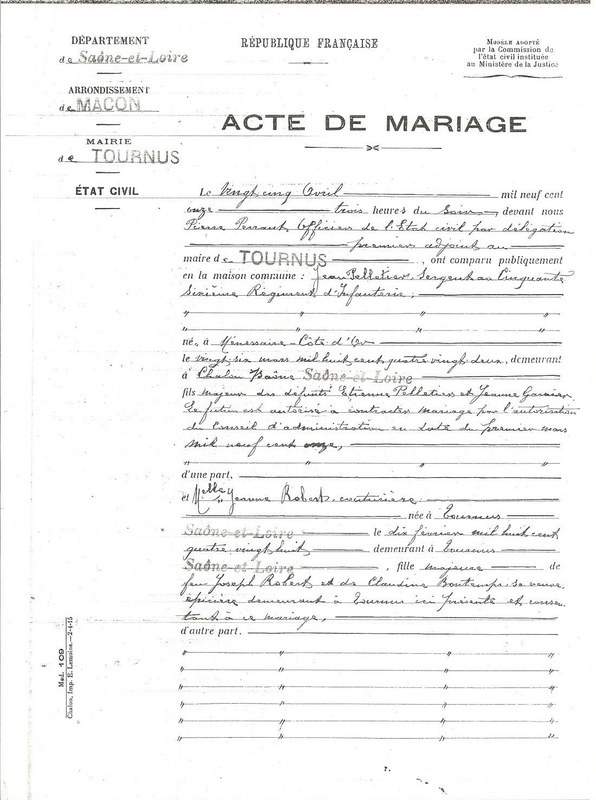 DÉPARTEMENT
de Saône-et-Loire
ARRONDISSEMENT
de MACON
MAIRIE
de TOURNUS
ÉTAT CIVIL
RÉPUBLIQUE FRANÇAISE
MODÈLE ADOPTÉ
par la Commission de
l'état civil instituée
au Ministère de la Justice
ACTE DE MARIAGE
Le Vingt cinq Avril mil neuf cent
onze trois heures du Soir, devant nous
Pierre Perraut Officier de l'Etat civil par délégation
premier adjoint au
maire de TOURNUS, ont comparu publiquement
en la maison commune : Jean Pelletier, Sergent au Cinquante
Sixième Régiment d'Infanterie,
" " " "
" " " "
né à Ménessaire Côte d'Or
le vingt six mars mil huit cent quatre vingt deux, demeurant
à Chalon Saône Saône-et-Loire
fils majeur des défunts Etienne Pelletier et Jeanne
Le futur est autorisé à contracter mariage par l'autorisation
du Conseil d'administration en date du premier mars
mil neuf cent onze,
" " " "
d'une part,
et Melle Jeanne Robert couturière
née à Tournus
Saône-et-Loire le dix février mil huit cent
quatre vingt huit demeurant à Tournus
Saône-et-Loire, fille majeure de
feu Joseph Robert et de Claudine Bontemps, sa veuve
épicière demeurant à Tournus ici présente et consen
tant à ce mariage,
d'autre part.
" " " "
" " " "
" " " "
" " " "
" " " "
" " " "
Mod. 109
Chalon, Imp. E. Lemoine.—2-4-15